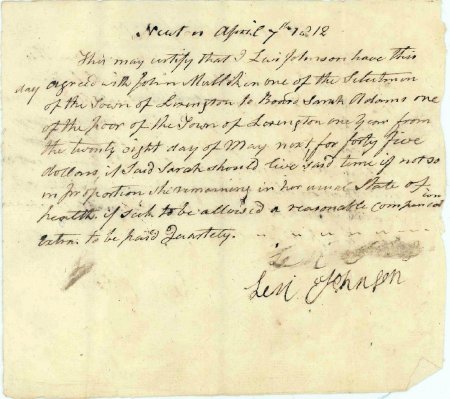 Newton April 7th 1812
This may certify that I Levi Johnson have this
day agreed with John Mulliken one of the Selectmen
of the Town of Lexington to Board Sarah Adams one
of the Poor of the Town of Lexington one year from
the twenty eight day of May next, for forty five
dollars, if Said Sarah should live said time if not so
in proportion She remaining in her usual State of
health if Sick to be allowed a reasonable compensation
extra. to be paid Quartely.
Levi Johnson